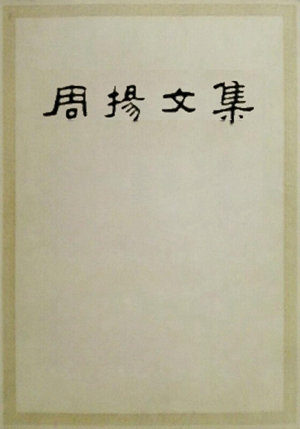 周揚文集